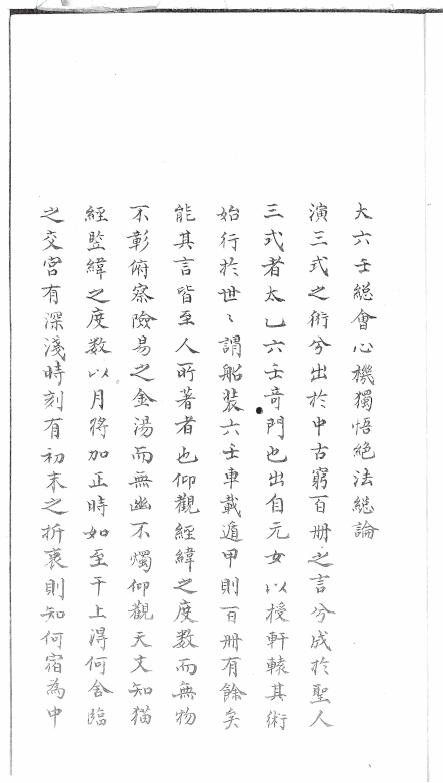 大六壬緫會心機獨悟絕法緫論
演三式之術兮出於中古窮百册之言兮成於聖人
三式者太乙六壬竒門也出自元女以授軒轅其術
始行於世〻謂船装六壬車載遁甲則百册有餘矣
能其言皆至人所著者也仰觀經緯之度数而無物
不彰俯察險易之金湯而無幽不燭仰觀天文知猫
經監緯之度数以月將加正時如至干上淂何舍臨
之交宫有深淺時刻有初末之折衷則知何宿為中